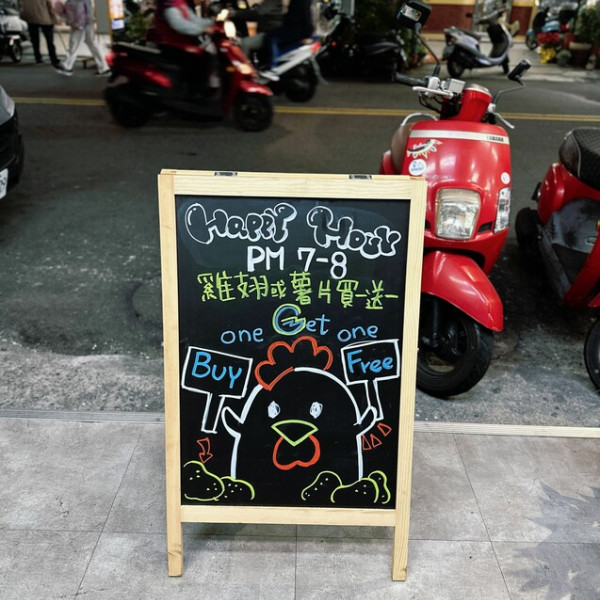 Happy Hour
PM 7-8
雞翅或薯片買一送一
one Get one
Buy Free